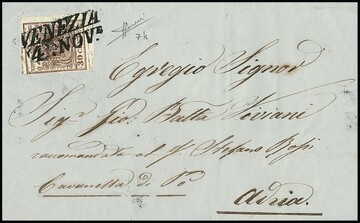 VENEZIA
4. NOV.E
Egregio Signor
Sig.r Gio: Batta Toviani
raccomandata al S.r Stefano Bosi
Cavanella di Po
Adria